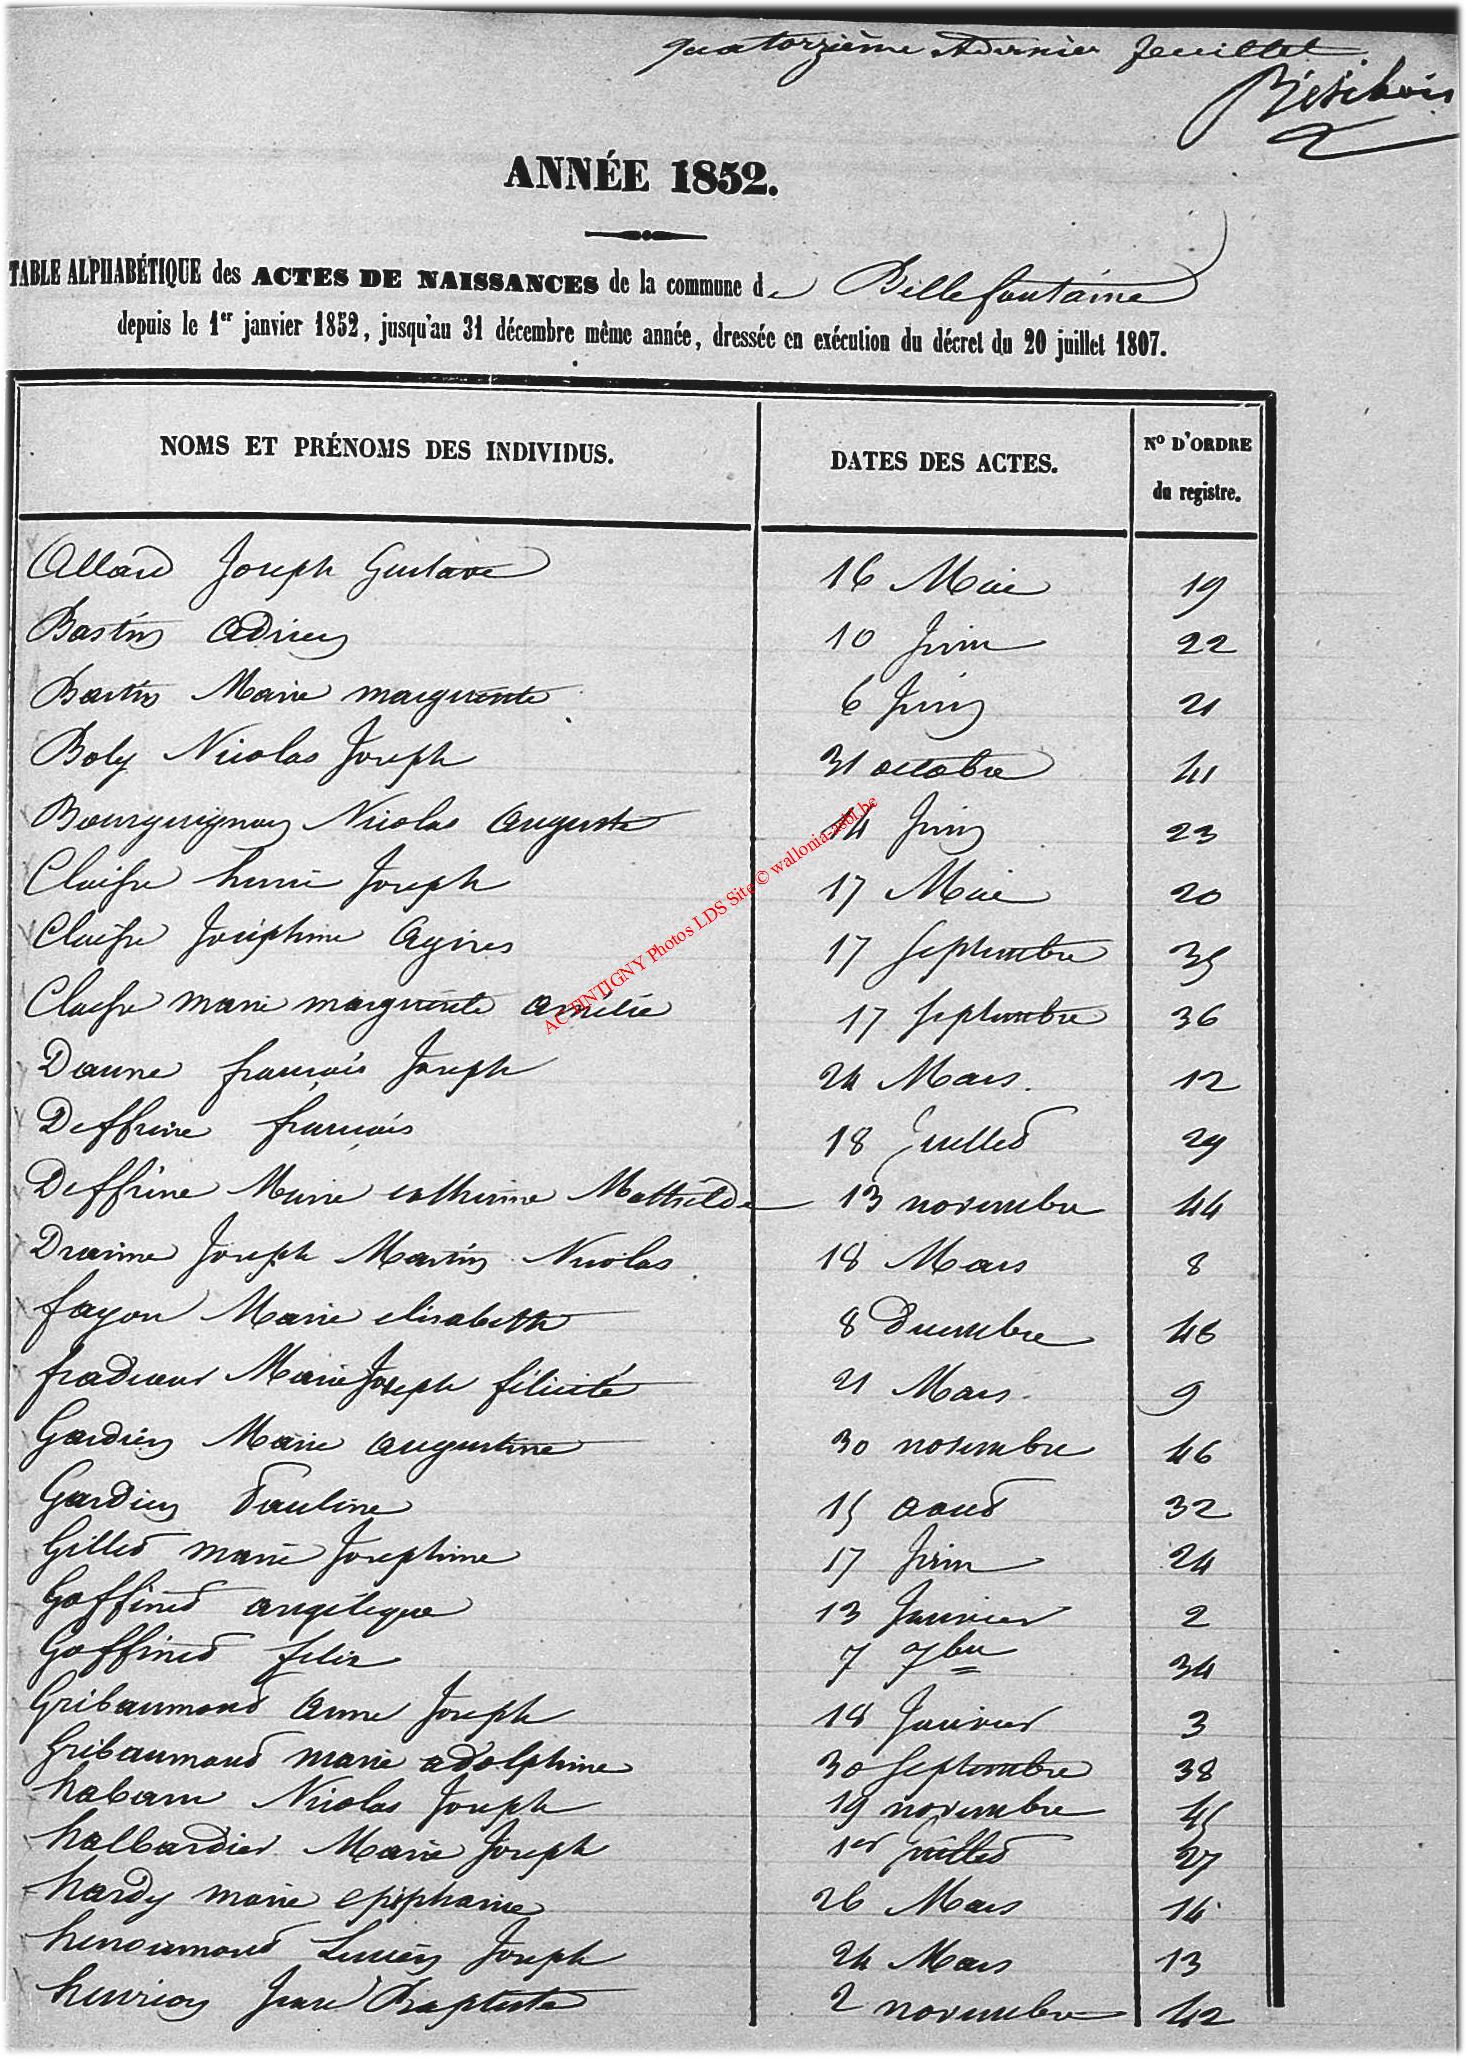 quatorzième et dernier feuillet
ANNÉE 1852.
TABLE ALPHABÉTIQUE des ACTES DE NAISSANCES de la commune de Bellefontaine
depuis le 1er janvier 1852, jusqu'au 31 décembre même année, dressée en exécution du décret du 20 juillet 1807.
NOMS ET PRÉNOMS DES INDIVIDUS. DATES DES ACTES. No D'ORDRE
du registre.
Allard Joseph Gustave 16 Mai 19
Bastin Adrien 10 Juin 22
Bastin Marie marguerite 6 Juin 21
Boly Nicolas Joseph 31 octobre 41
Bourguignon Nicolas Auguste 14 Juin 23
Claisse henri Joseph 17 Mai 20
Claisse Joséphine Agnes 17 Septembre 35
Claisse marie marguerite amélie 17 Septembre 36
Daune françois Joseph 24 Mars. 12
Deffrene françois 18 Juillet 29
Deffrène Marie catherine Mathilde 13 novembre 44
Joseph Martin Nicolas 18 Mars 8
fayon Marie elisabeth 8 Decembre 48
Marie Joseph félicité 21 Mars. 9
Gardien Marie augustine 30 novembre 46
Gardien Pauline 15 aout 32
Gillet marie Josephine 17 Juin 24
Goffinet angélique 13 Janvier 2
Goffinet felix 7 7bre 34
Gribaumont Anne Joseph 18 Janvier 3
Gribaumont marie adolphine 30 Septembre 38
habaru Nicolas Joseph 19 novembre 45
halbardier Marie Joseph 1er Juillet 27
hardy marie epiphanie 26 Mars 14
henoumont Lucien Joseph 24 Mars 13
henrion Jean Baptiste 2 novembre 42
ACTINTIGNY Photos LDS Site © wallonia-asbl.be